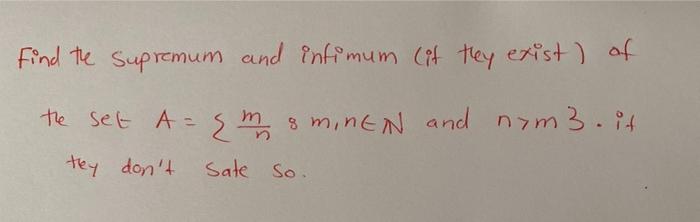 Find the supremum and infimum (if they exist) of
the set A = { m/n : m,n∈N and n>m }. if
they don't sate so.